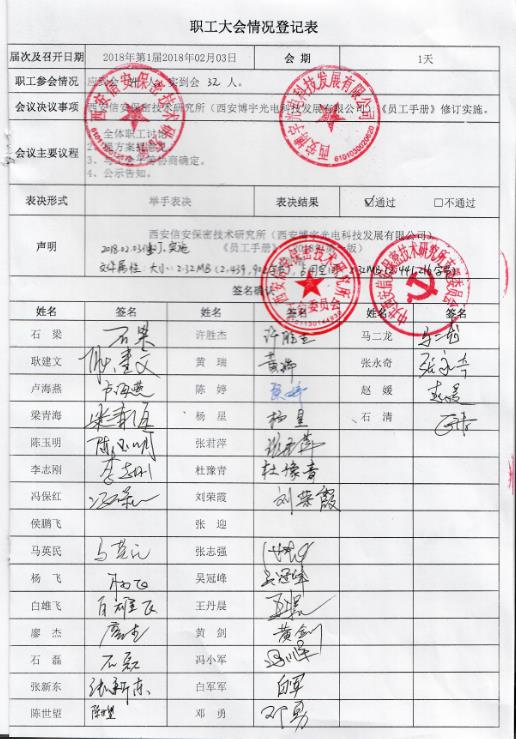 职工大会情况登记表
届次及召开日期 2018年第1届2018年02月03日 会 期 1天
职工参会情况 应到会 人,实到会 32 人。
会议决议事项 西安信安保密技术研究所(西安博宇光电科技发展有限公司)《员工手册》修订实施。
会议主要议程 1、全体职工讨论
3、与 协商确定。
4、公示告知。
表决形式 举手表决 表决结果 ☑通过 □不通过
声明 西安信安保密技术研究所(西安博宇光电科技发展有限公司)
2018.02.03修订、实施 《员工手册》
文件属性:大小:2.32MB
签名确认
姓名 签名 姓名 签名 姓名 签名
石 梁 石梁 许胜杰 许胜杰 马二龙 马二龙
耿建文 耿建文 黄 瑞 黄瑞 张永奇 张永奇
卢海燕 卢海燕 陈 婷 陈婷 赵 媛 赵媛
梁青海 梁青海 杨 星 杨星 石 清 石清
陈玉明 陈玉明 张君萍 张君萍
李志刚 李志刚 杜豫青 杜豫青
冯保红 冯保红 刘荣霞 刘荣霞
侯鹏飞 张 迎
马英民 马英民 张志强
杨 飞 杨飞 吴冠峰 吴冠峰
白雄飞 白雄飞 王丹晨
廖 杰 廖杰 黄 剑 黄剑
石 磊 石磊 冯小军 冯小军
张新东 张新东 白军军 白军
陈世望 陈世望 邓 勇 邓勇
西安信安保密技术研究所
西安博宇光电科技发展有限公司
6101030020620
西安信安保密技术研究所
工会委员会